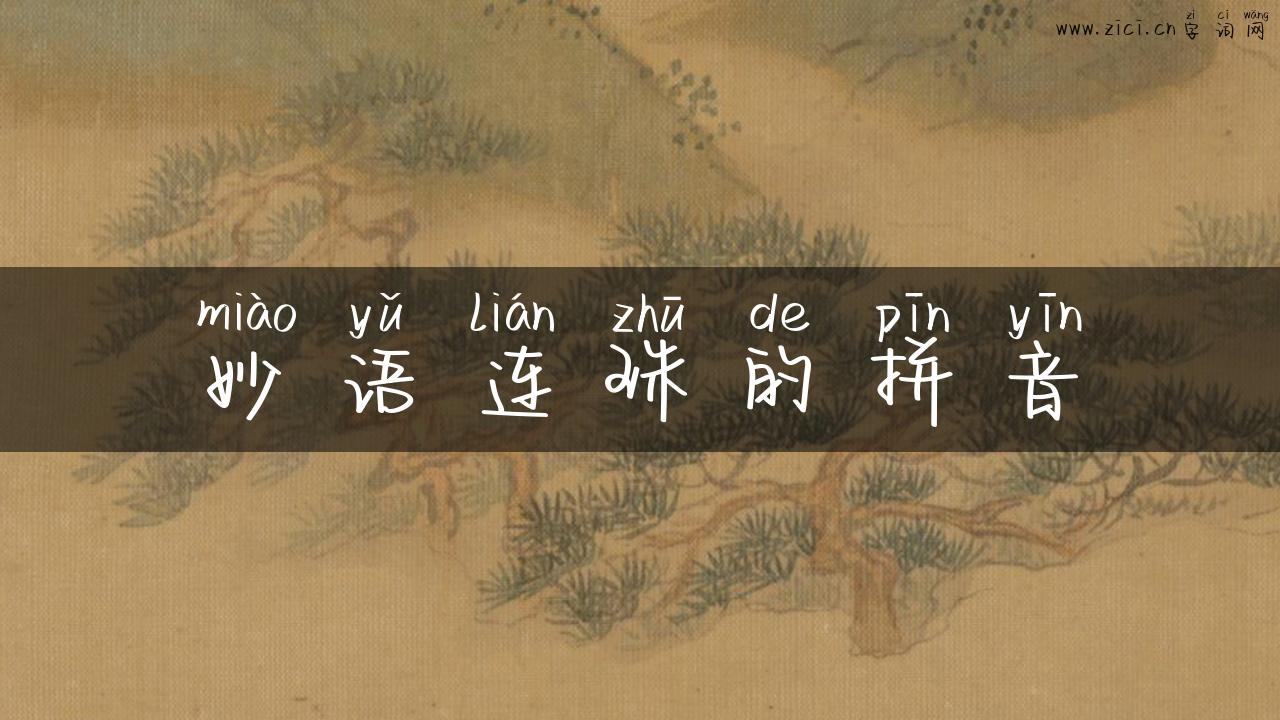 zì cí wǎng
www.zici.cn 字词网
miào yǔ lián zhū de pīn yīn
妙语连珠的拼音